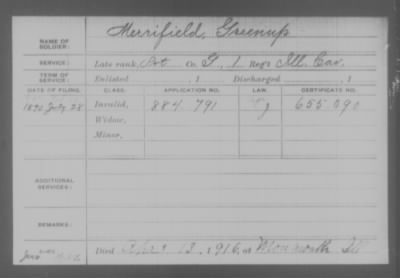 NAME OF SOLDIER: Merrifield, Greenup
SERVICE: Late rank, Pvt Co. G, 1 Reg't Ill. Cav.
TERM OF SERVICE: Enlisted , 1 Discharged , 1
DATE OF FILING. CLASS. APPLICATION NO. LAW. CERTIFICATE NO.
1890 July 28 Invalid, 884,791 655,090
Widow,
Minor,
ADDITIONAL SERVICES:
REMARKS:
Died 13, 1916, at Monmouth Ill